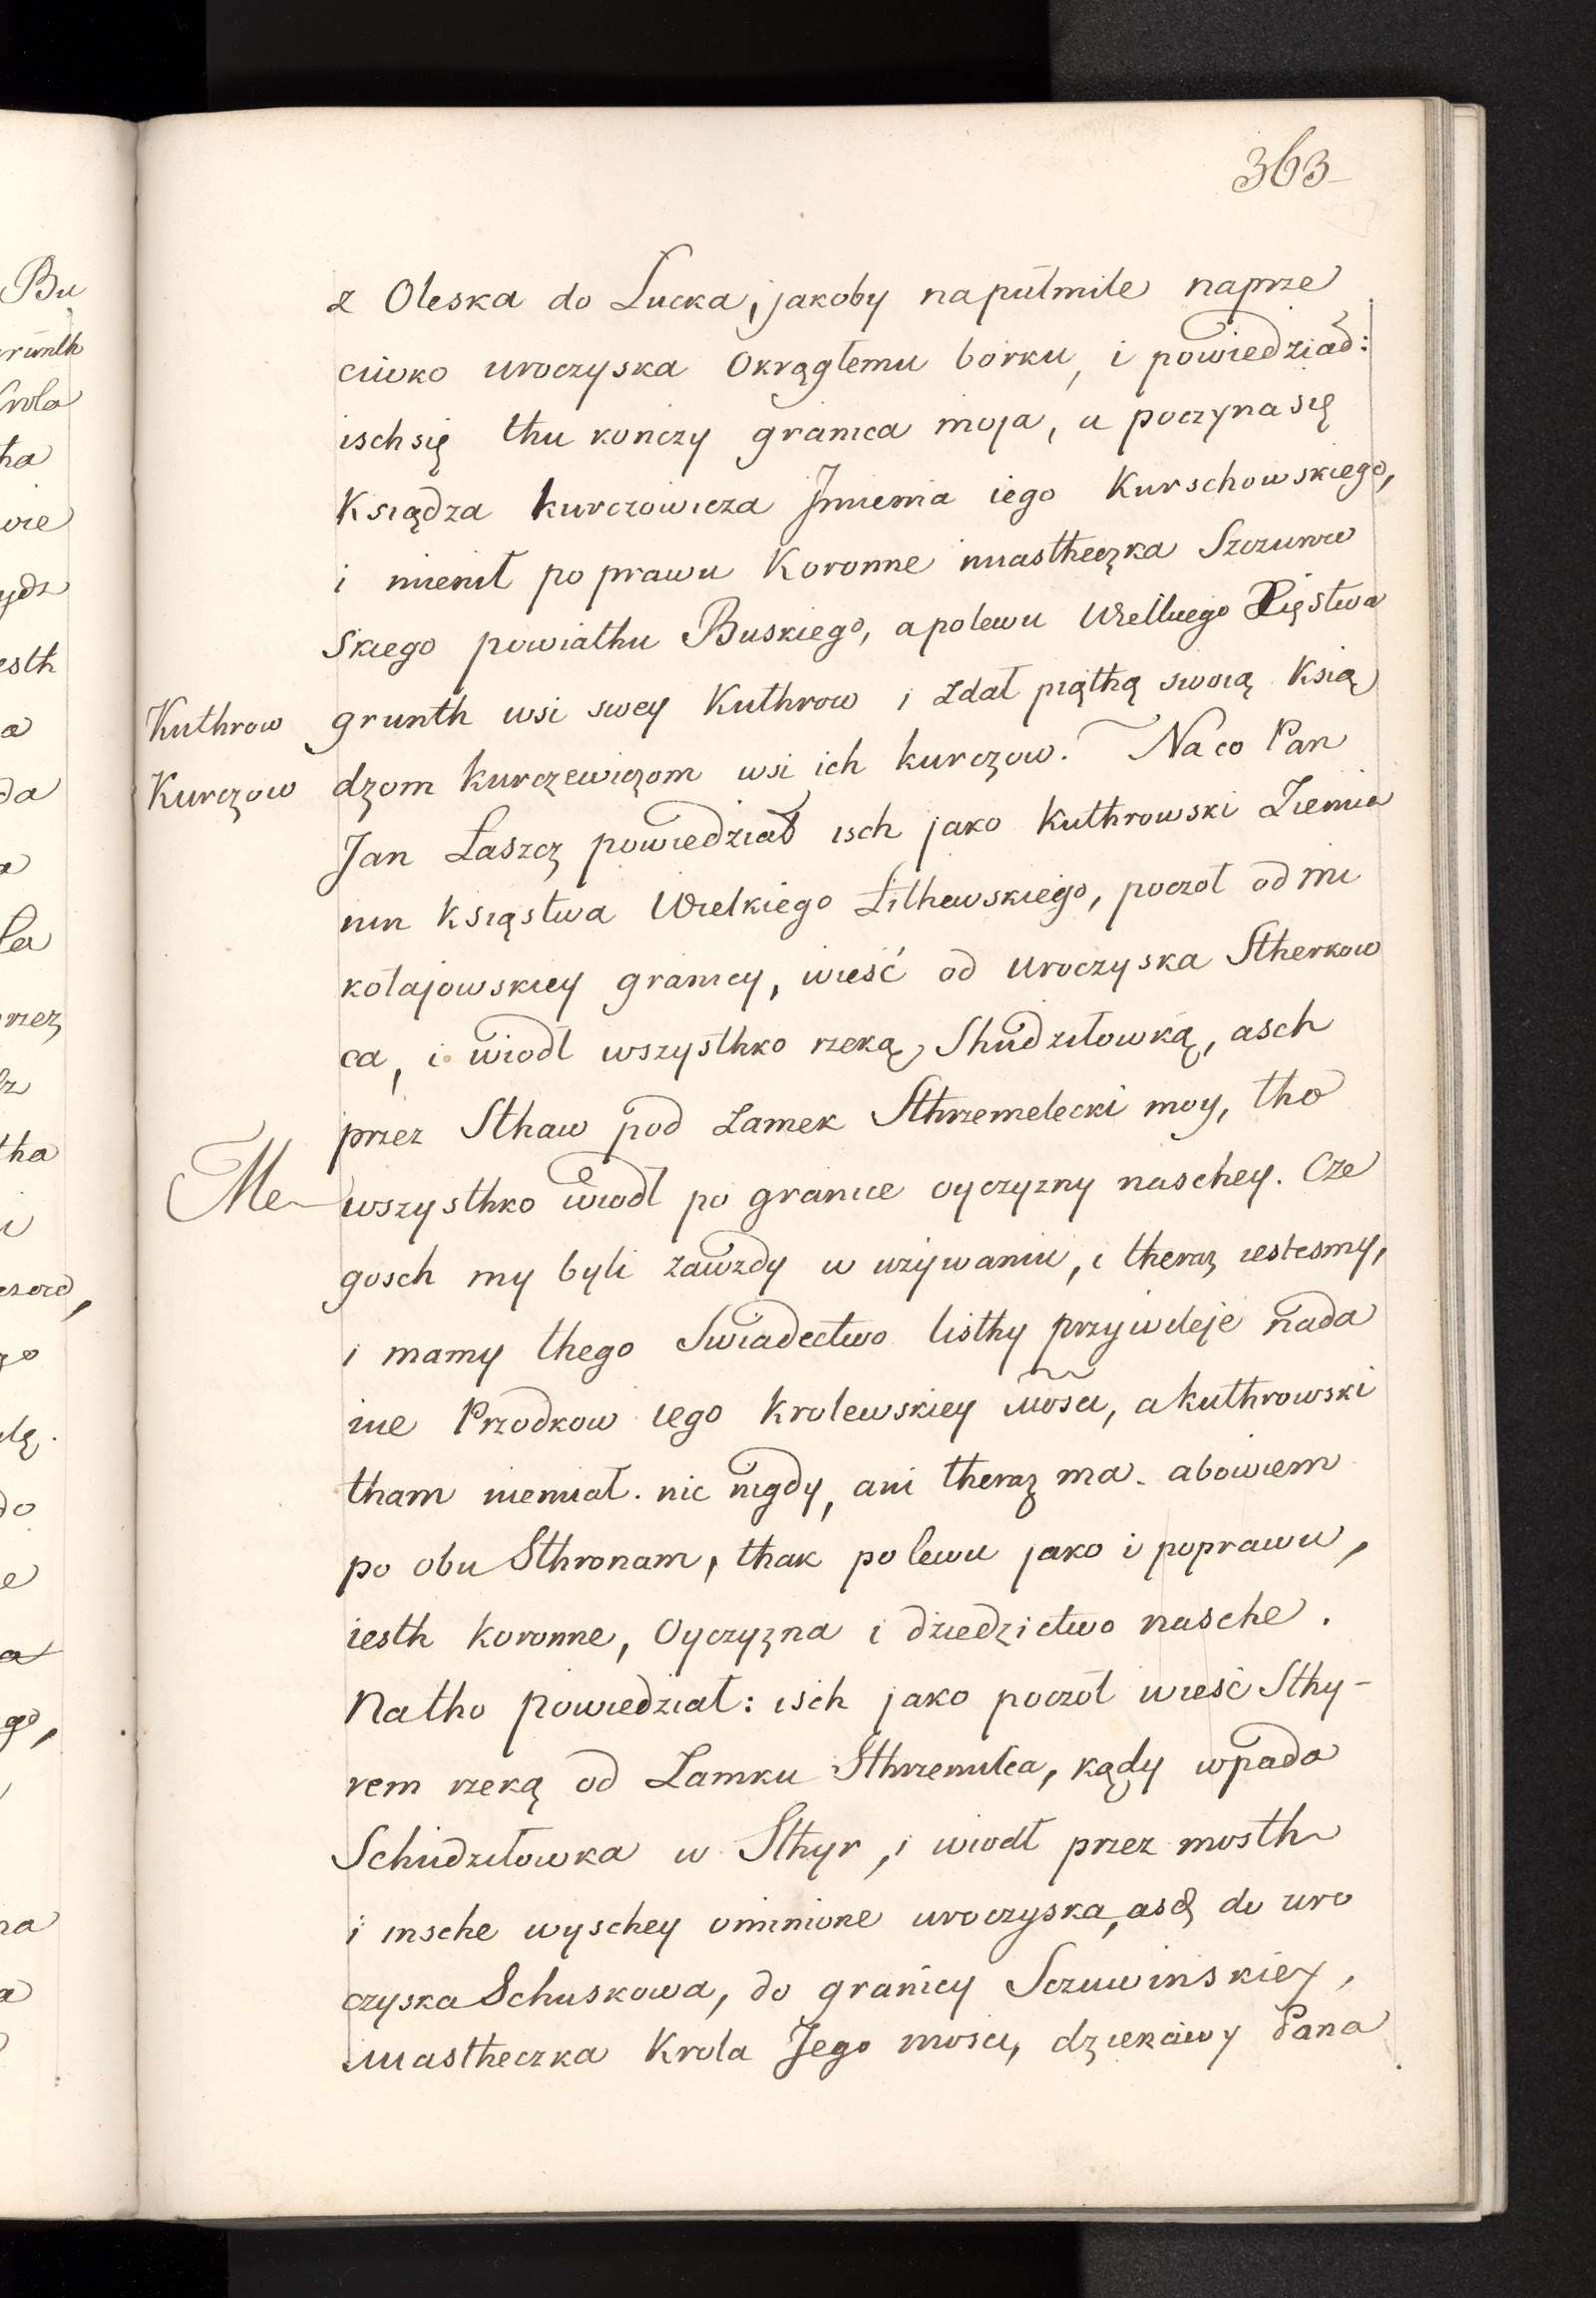 363
z Oleska do Lucka, jakoby na pułmile naprze
ciwko uroczyska Okrągłemu borku, i powiedział:
isch się thu kończy granica moja, a poczyna się
Ksiądza kurczowicza Jmienia iego Kurschowskiego,
i mienił po prawu Koronne miastheczka Szczurwo
skiego powiathu Buskiego, a polewu Wielkiego Xięstwa
Kuthrow grunth wsi swey Kuthrow i zdał piąthą swoią Ksią
Kurczow dzom kurczewiczom wsi ich kurczow. Na co Pan
Jan Łaszcz powiedział isch jako kuthrowski Ziemia
nin Ksiąstwa Wielkiego Lithewskiego, poczoł od mi
kołajowskiey granicy, wieść od uroczyska Stherkow
ca, i wiodł wszysthko rzeką Shudziłowką, asch
przez Sthaw pod Zamek Sthrzemelecki moy, tho
Me wszysthko wiodł po granice oyczyzny naschey. Cze
gosch my byli zawzdy w używaniu, i theraz iestesmy,
i mamy thego Swiadectwo listhy przywileje nada
nie Przodkow iego Krolewskiey mosci, a kuthrowski
tham niemiał nic nigdy, ani theraz ma. abowiem
po obu Sthronam, thak polewu jako i poprawu,
iesth koronne, Oyczyzna i dziedzictwo nasche.
Natho powiedział: isch jako poczoł wieść Sthy-
rem rzeką od Zamku Sthrzemilca, kądy wpada
Schudziłowka w Sthyr, i wiodł przez mosth
i insche wyschey ominione uroczyska, asch do uro
czyska Schuskowa, do granicy Sczuwinskiey,
miastheczka Krola Jego mosci, dzierżawy Pana
Bu
runth
Krola
esth
rzez
tha